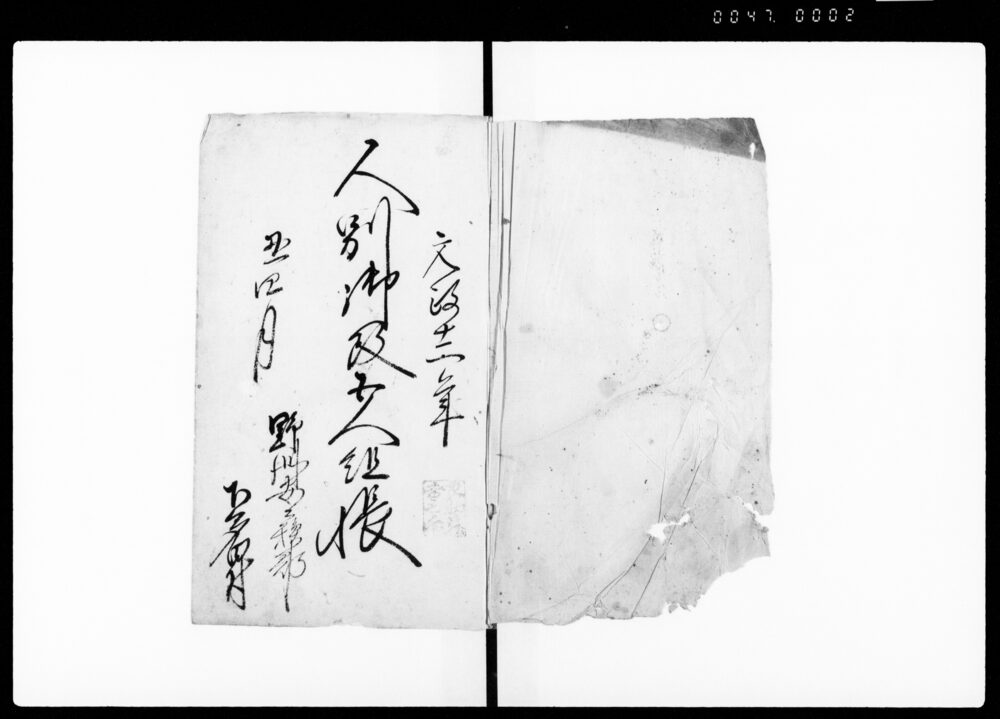 0047. 0002
文政十二年
人別御改五人組帳
丑四月
野州安蘇郡